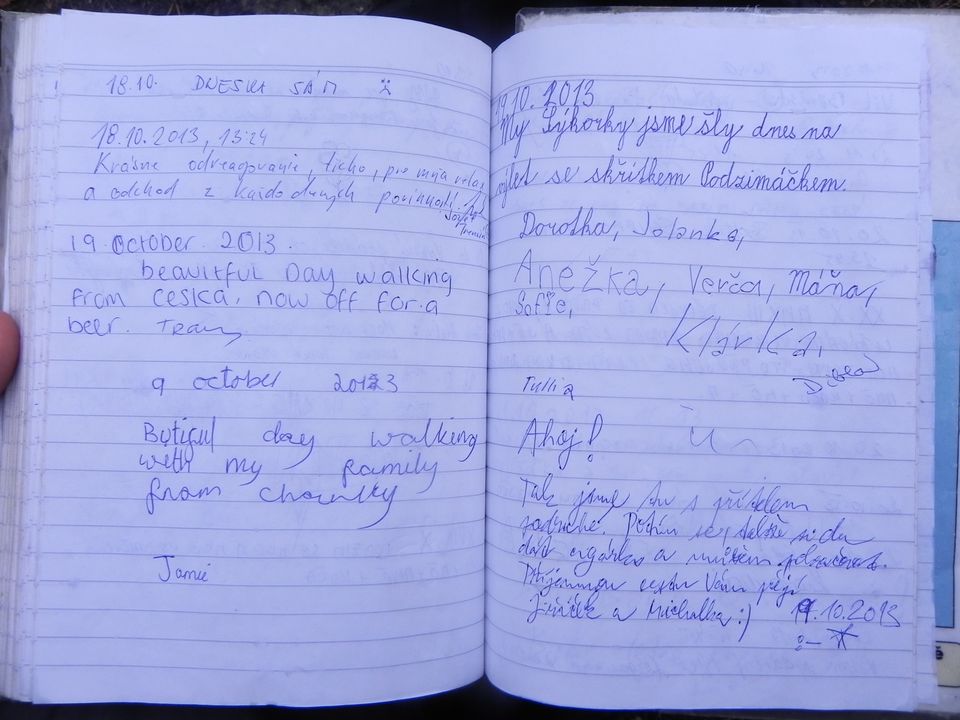 18.10. DNESKA SÁM
18.10.2013, 13:24
Krásne odreagovanie, ticho, pre mňa relax
a odchod z každodenných povinností.
19. October. 2013.
beautiful Day walking
From CESKA, now off for a
beer.
9 october 2013
Butiful day walking
with my family
from
Jamie
19.10.2013
My Sýkorky jsme šly dnes na
výlet se skřítkem Podzimáčkem.
Dorotka, Jolanka,
Anežka, Verča, Máňa,
Sofie,
Klárka,
Ahoj!
Tak jsme tu s přítelem
dát cigárko a můžem pokračovat.
Příjemnou cestu Vám přejí
Jiříček a Michalka :) 19.10.2013